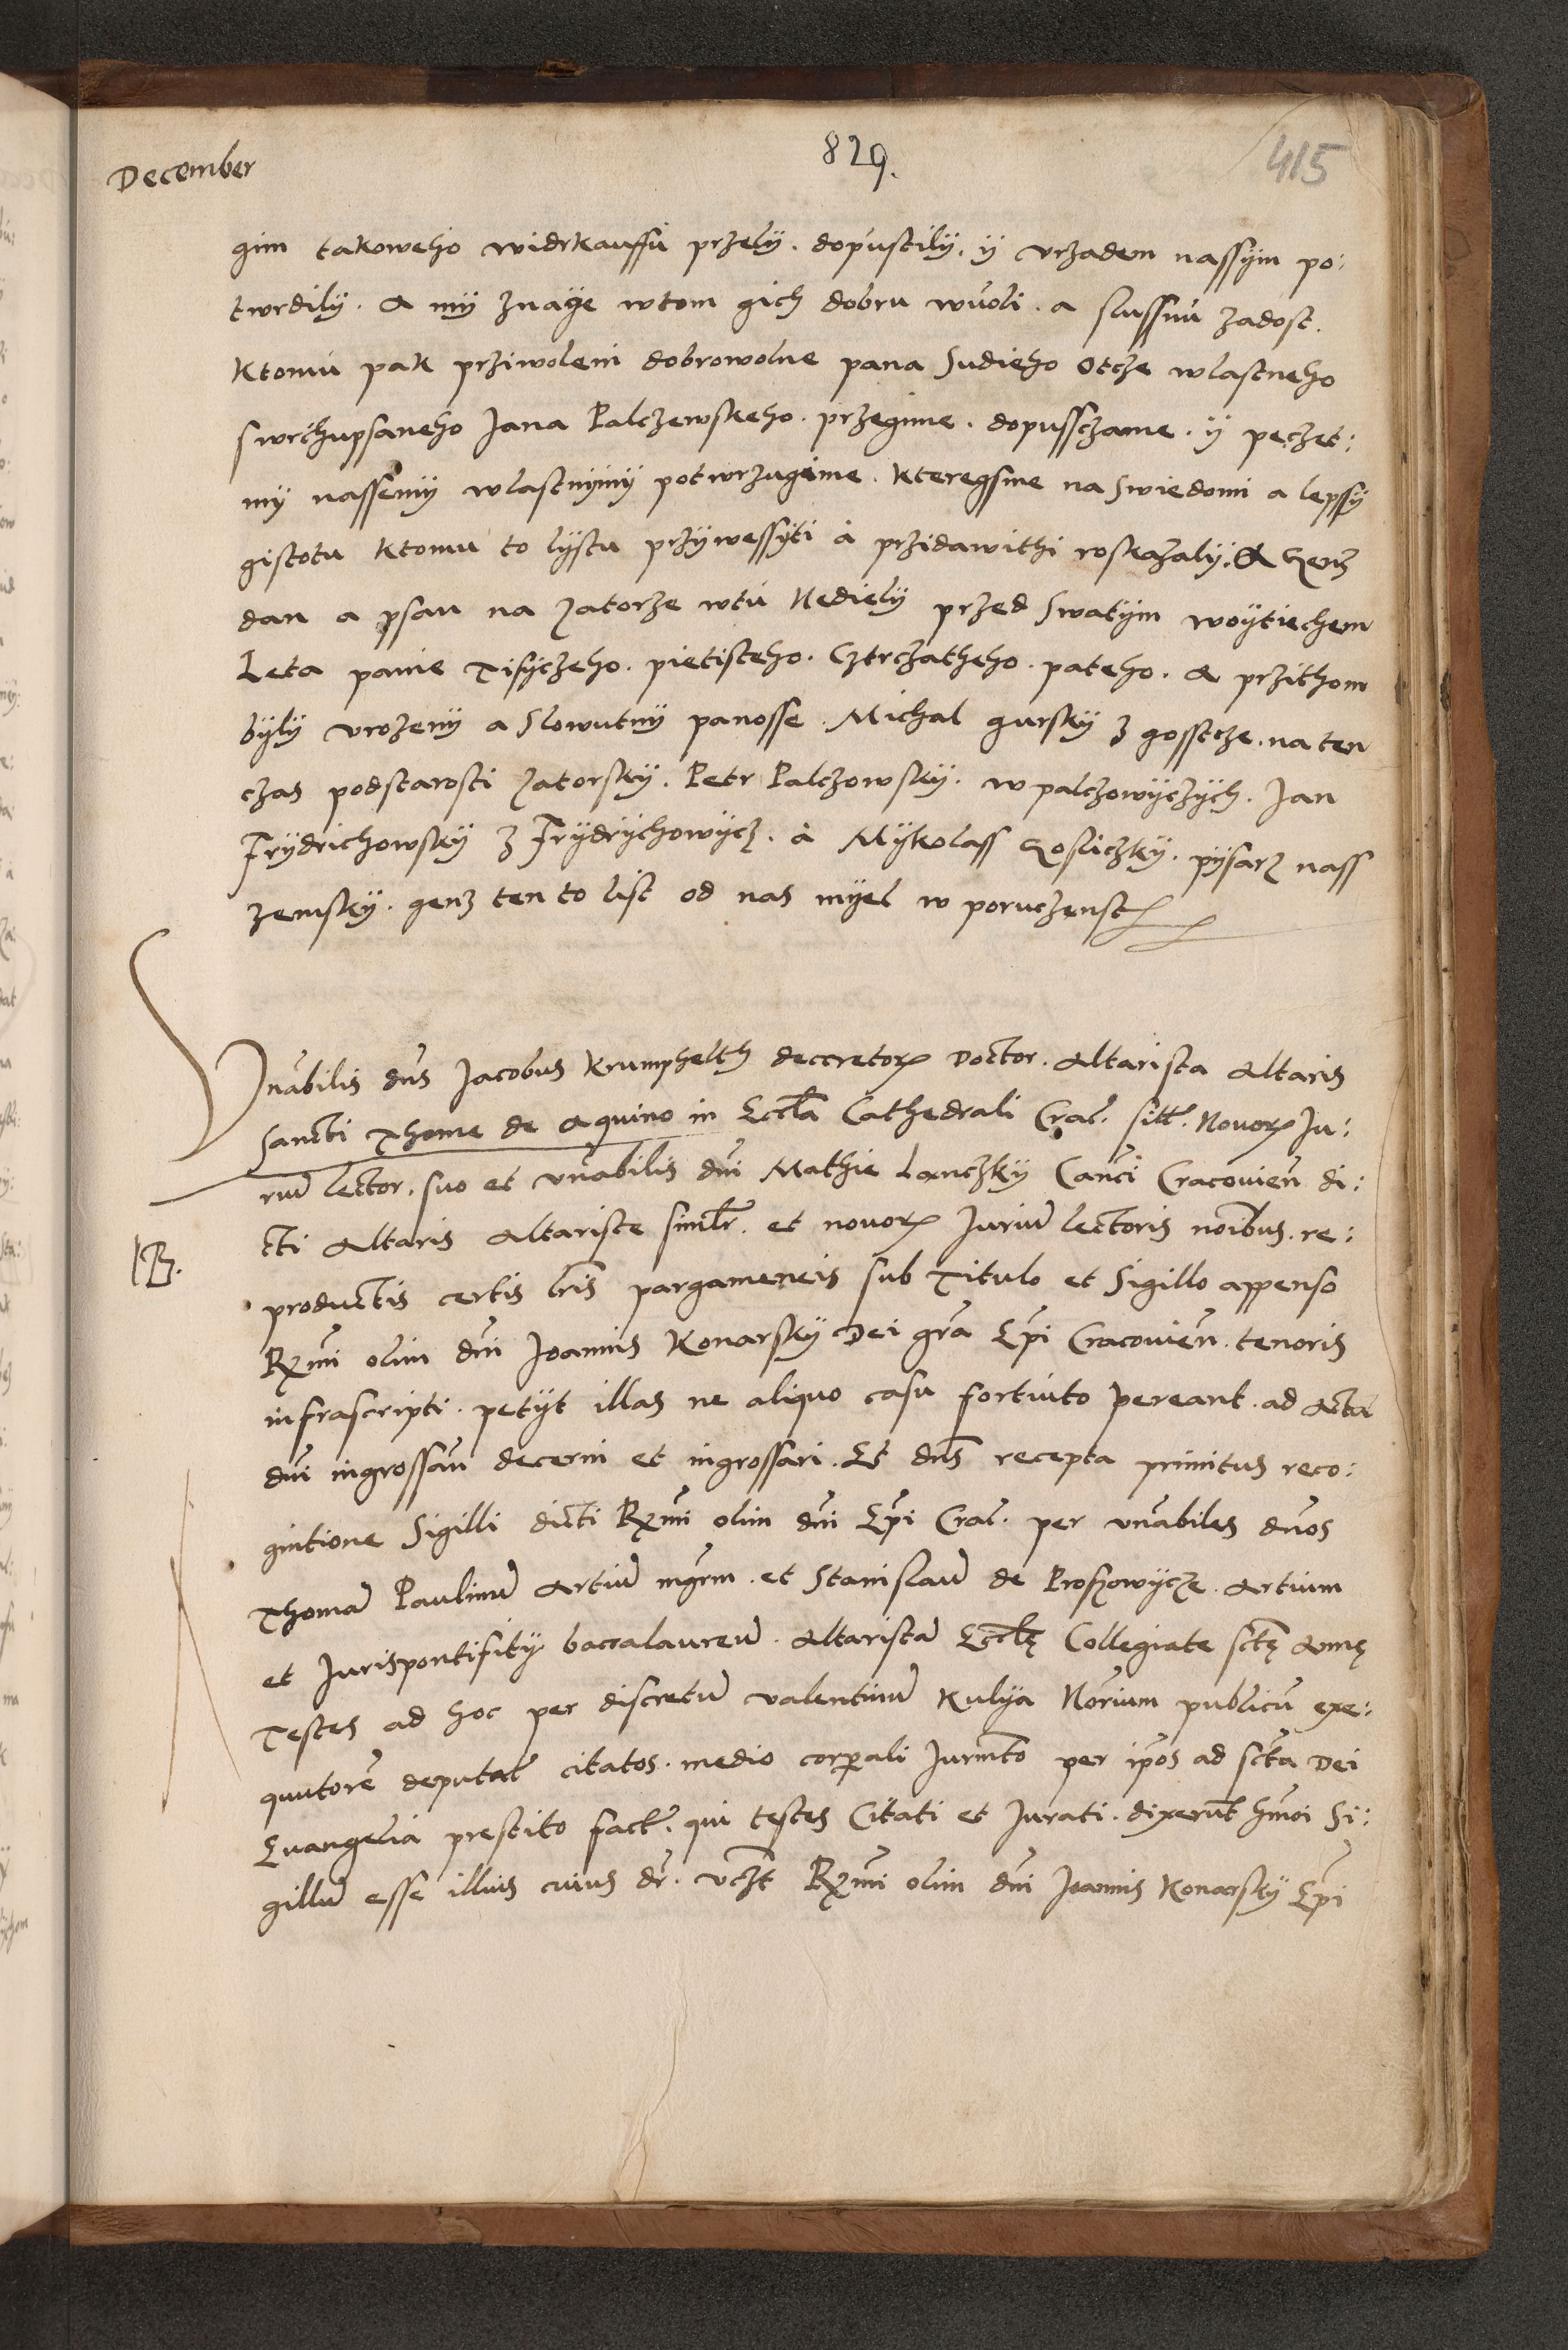 December
829.
415
gim takoweho widrkauffu przely. dopustily. ÿ vrzadem nassÿm po:
twrdily. A mÿ znaÿe wtom gich dobru wuoli. a slussnu zadost.
Ktomu pak prziwoleni dobrowolne pana Sudieho Otcze wlastneho
swrchupsaneho Jana Palczewskeho. przegime. dopussczame. ÿ peczet:
mÿ nassemÿ wlastnÿmÿ potwrzugeme. Kteregsme na Swiedomi a lepssÿ
gistotu Ktomu to lÿstu przÿwessÿti a przidawithi roskazalÿ. A genz
dan a psan na Zatorze wtu Nedielÿ przed Swatÿm woÿtiechem
Leta panie Tisÿczeho. pietisteho. Cztrczatheho. pateho. A przithom
bÿlÿ vrozenÿ a Slowutnÿ panosse. Michal gurskÿ z gosstcze. na ten
czas podstarosti Zatorskÿ. Petr Palczowskÿ. w palczowÿczÿch. Jan
Frÿdrichowskÿ z Frÿdrÿchowÿcz. a Mÿkolass Rosliczkÿ. pÿsarz nass
zemskÿ. genz ten to list od nas mÿel w poruczenst
Vnabilis dns Jacobus Krumphelth decretorꝝ Doctor. Altarista Altaris
Sancti Thome de Aquino in Eccla Cathedrali Crac. sitt. Nouorꝝ Ju:
rium lector. suo et vnabilis dni Mathie Lanczkÿ Canci Cracouien di:
cti Altaris Altariste similr. et nouorꝝ Jurium lectoris noibus. re:
NB.
productis certis lris pargameneis sub Titulo et Sigillo appenso
Rxmi olim dni Joannis Konarskÿ Dei gra Epi Cracouien. tenoris
infrascripti. petÿt illas ne aliquo casu fortuito pereant. ad Acta
dni ingrossan decerni et ingrossari. Et dns recepta primitus reco:
gnitione Sigilli dicti Rxmi olim dni Epi Crac. per vnabiles dnos
Thomam Paulinum Artium mgrm. et Stanislaum de Proszowÿcze. Artium
et Jurispontifitÿ baccalaureum. Altaristam Ecclę Collegiate sctę Annę
Testes ad hoc per discretum valentinum Kulÿa Norium publicum exe:
quutorem deputat citatos. medio corporali Jurmto per ipos ad scta Dei
Euangelia prestito fact. qui testes Citati et Jurati. dixerunt hmoi Si:
gillum esse illius cuius dr. vczt Rxmi olim dni Joannis Konarskÿ Epi